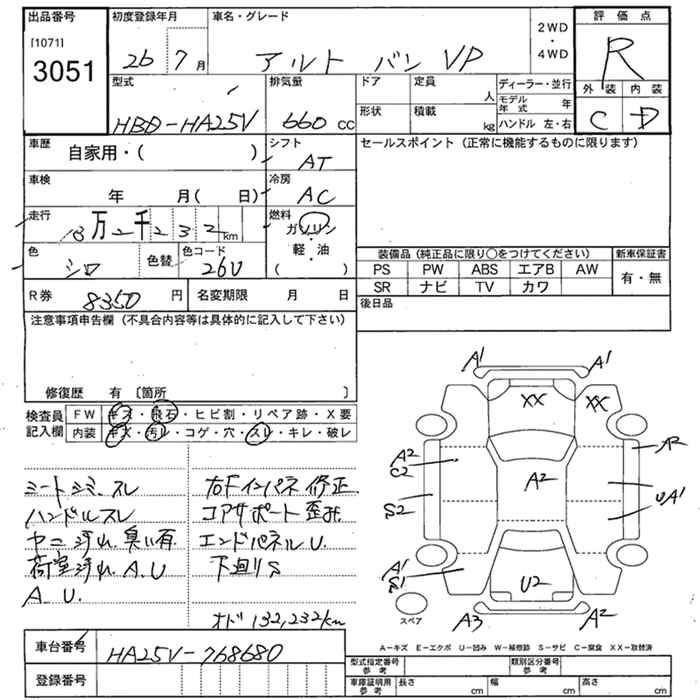 出品番号
[1071]
3051
初度登録年月
26 7月
車名・グレード
アルト バン VP
2WD
・
4WD
評価点
R
外装 内装
C D
型式
HBD-HA25V
排気量
660 CC
ドア
定員 人
形状
積載 kg
ディーラー・並行
モデル年式 年
ハンドル 左・右
車歴
自家用・( )
シフト
AT
車検
年 月( 日)
冷房
AC
走行
13万2千232km
燃料
ガソリン
・
軽油
・
( )
色
シロ
色替
色コード
26U
R券 8350円
名変期限 月 日
セールスポイント (正常に機能するものに限ります)
装備品 (純正品に限り○をつけてください)
新車保証書
PS PW ABS エアB AW
SR ナビ TV カワ
有・無
後日品
注意事項申告欄 (不具合内容等は具体的に記入して下さい)
修復歴 有 〔箇所 〕
検査員
記入欄
FW キズ・飛石・ヒビ割・リペア跡・X要
内装 キズ・汚レ・コゲ・穴・スレ・キレ・破レ
シートシミ、スレ
ハンドルスレ
ヤニ汚れ、臭い有
荷室汚れ、A、U
A、U、
右Fインパネ修正
コアサポート歪み
エンドパネルU、
下廻りS
オド132,232km
A1 A1
XX XX
A2
A2
C2
A2
UA1
S2
A1
S1
U2
A3 A2
スペア
A-キズ E-エクボ U-凹み W-補修跡 S-サビ C-腐食 XX-取替済
車台番号
HA25V-768680
登録番号
型式指定番号
参考
類別区分番号
参考
車庫証明用
参考
長さ cm
幅 cm
高さ cm